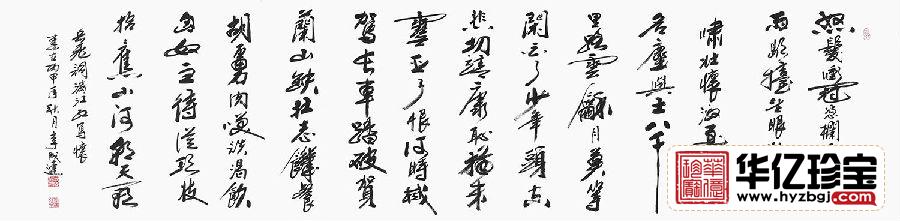 怒髮衝冠憑欄
雨歇擡望眼
嘯壯懷激
名塵與土八千
里路雲龢月莫等
閑白了少年頭空
悲切靖康恥猶未
雪臣子恨何時滅
駕長車踏破賀
蘭山缺壯志饑餐
胡虜肉笑談渴飲
匈奴血待從頭收
拾舊山河朝天闕
岳飛詞滿江紅寫懷
歲在丙申年秋月李成連
华亿珍宝
www.hyzbgj.com